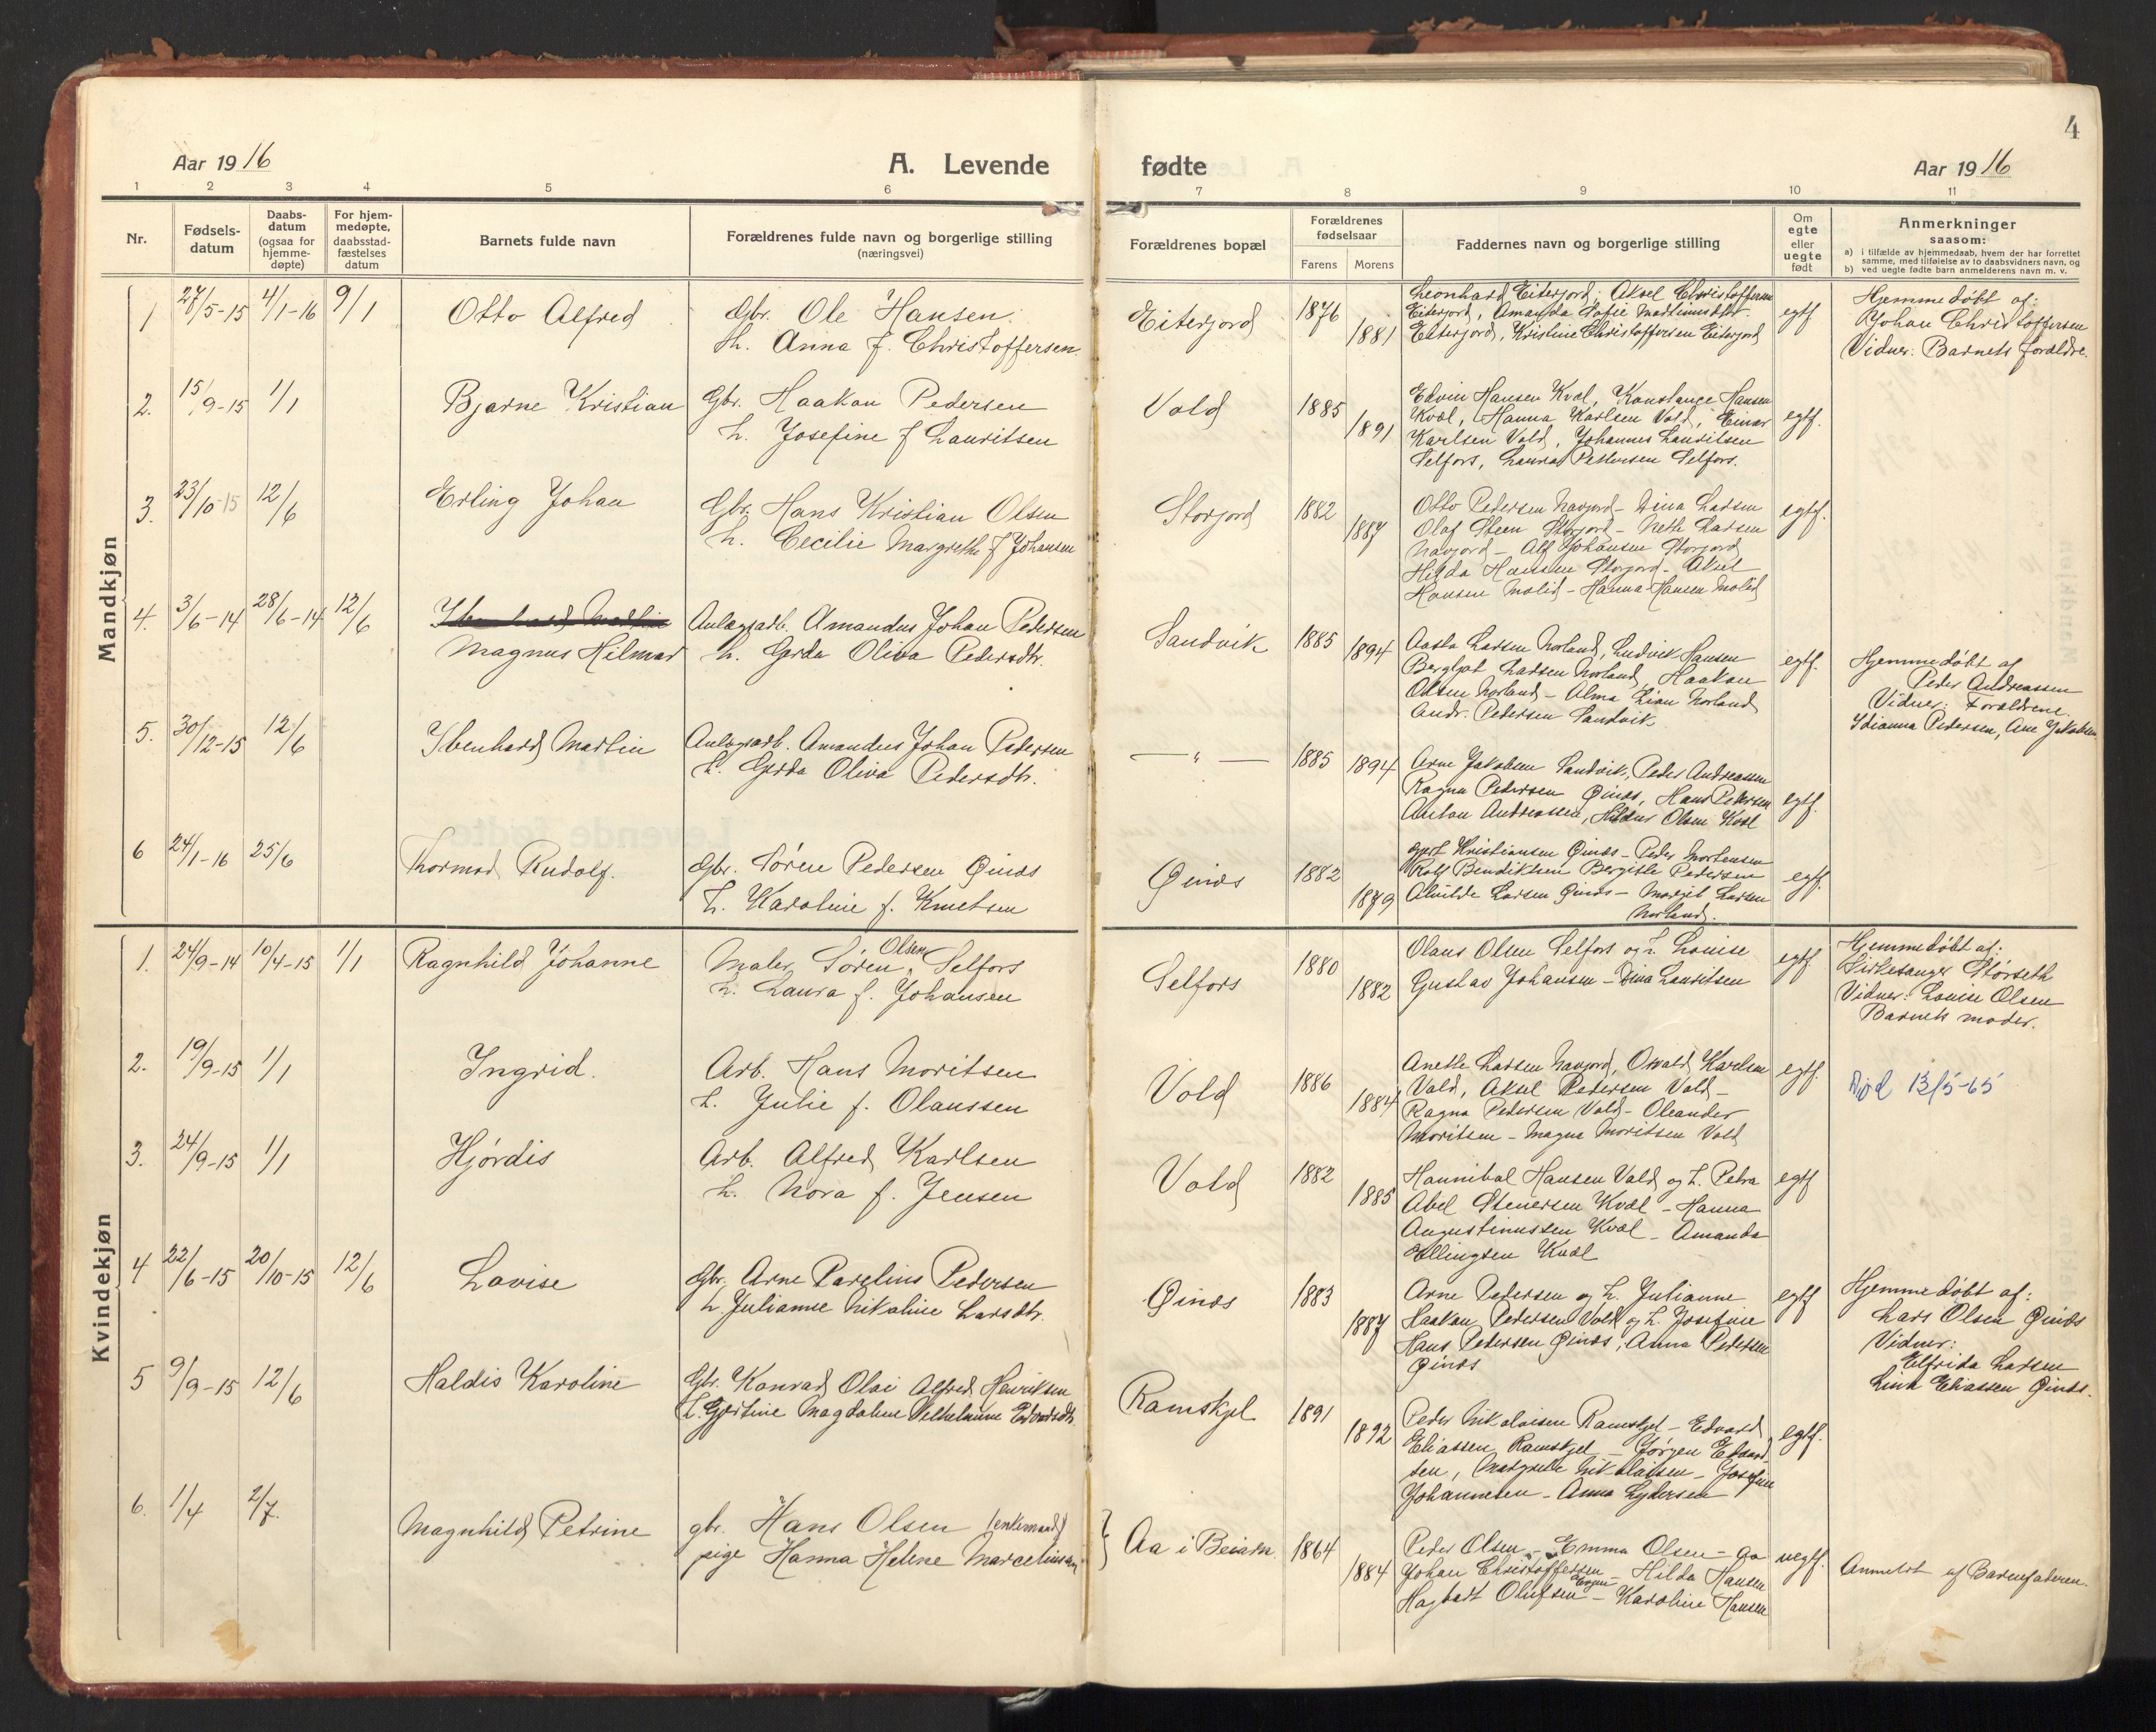 4
Aar 1916 A. Levende fødte Aar 1916
1 2 3 4 5 6 7 8 9 10 11
Nr.
Fødsels-
datum
Daabs-
datum
(ogsaa for
hjemme-
døpte)
For hjem-
medøpte,
daabsstad-
fæstelses
datum
Barnets fulde navn
Forældrenes fulde navn og borgerlige stilling
(næringsvei)
Forældrenes bopæl
Forældrenes
fødselsaar
Farens Morens
Faddernes navn og borgerlige stilling
Om
egte
eller
uegte
født
Anmerkninger
saasom:
a) i tilfælde av hjemmedaab, hvem der har forrettet
samme, med tilføielse av to daabsvidners navn, og
b) ved uegte fødte barn anmelderens navn m. v.
Mandkjøn
1 27/5-15 4/1-16 9/1 Otto Alfred
Gbr. Ole Hansen
h. Anna f. Christoffersen
Eiterjord 1876 1881
Leonhard Eiterjord, Aksel Christoffersen
Eiterjord, Amanda Sofie Martinusdtr.
Eiterjord, Kristine Christoffersen Eiterjord
egtf
Hjemmedøbt af:
Johan Christoffersen
Vidner: Barnets forældre.
2. 15/9-15 1/1 Bjarne Kristian
Gbr. Haakon Pedersen
h. Josefine f Lauritsen
Vold 1885 1891
Edvin Hansen Kvæl, Konstange Hansen
Kvæl, Hanna Karlsen Vold, Einar
Karlsen Vold, Johannes Lauritsen
Selfors, Laura Pettersen Selfors.
egtf.
3. 23/10-15 12/6 Erling Johan
Gbr. Hans Kristian Olsen
h. Cecilie Margrethe f Johansen
Storjord 1882 1887
Otto Pedersen Navjord - Dina Larsen
Olaf Steen Storjord - Neth Larsen
Navjord - Alf Johansen Storjord
Hilda Hansen Storjord - Aksel
Hansen Molid - Hanna Hansen Molid
egtf.
4. 3/6-14 28/6-14 12/6
Magnus Hilmar
Anlægsarb. Amandus Johan Pedersen
h. Gerda Oliva Pedersdtr.
Sandvik 1885 1894
Aasta Larsen Norland, Ludvik Hansen
Bergljot Larsen Norland, Haakon
Olsen Norland - Alma Lian Norland
Andr. Pedersen Sandvik
egtf.
Hjemmedøbt af
Peder Andreassen
Vidner: Forældrene.
Idianna Pedersen, Ane Jakobsen
5. 30/12-15 12/6 Ibenhard Martin
Anlægsarb. Amandus Johan Pedersen
h. Gerda Oliva Pedersdtr.
— " — 1885 1894
Arne Jakobsen Sandvik, Peder Andreassen
Ragna Pedersen Øinæs, Hans Petersen
Anton Andreassen, Olsen Kvæl
egtf.
6 24/1-16 25/6 Thormod Rudolf.
Gbr. Søren Pedersen Øinæs
h. Karoline f. Knutsen
Øinæs 1882 1879
Kristiansen Øinæs - Peder Mortensen
Rolf Bendiktsen Bergitte Pedersen
Alvilde Larsen Øinæs - Margit Larsen
Norland.
egtf.
Kvindekjøn
1. 24/9-14 10/4-15 1/1 Ragnhild Johanne
Maler Søren Olsen Selfors
h. Laura f. Johansen
Selfors 1880 1882
Olaus Olsen Selfors og h. Louise
Gustav Johansen - Dina Lauritsen
egtf
Hjemmedøbt af:
Kirkesanger Størseth
Vidner: Louise Olsen
Barnets moder.
2. 19/9-15 1/1 Ingrid.
Arb. Hans Moritsen
h. Julie f. Olaussen
Vold 1886 1884
Anethe Larsen Navjord, Osvald Karlsen
Vold, Aksel Pedersen Vold -
Ragna Pedersen Vold - Oleander
Moritsen - Magna Moritsen Vold
egtf.
Død 13/5-65
3. 24/9-15 1/1 Hjørdis
Arb. Alfred Karlsen
h. Nora f. Jensen
Vold 1882 1885
Hannibal Hansen Vold og h. Petra
Abel Stenersen Kvæl - Hanna
Augustinussen Kvæl - Amanda
Ellingsen Kvæl
egtf
4 22/6-15 20/10-15 12/6 Lovise
Gbr. Arne Parelius Pedersen
h. Julianne Nikoline Larsdtr.
Øinæs 1883 1887
Arne Pedersen og h. Julianne
Haakon Pedersen Vold og h. Josefine
Hans Petersen Øinæs, Anna Pedersen
Øinæs
egtf
Hjemmedøbt af:
Lars Olsen Øinæs
Vidner:
Elfrida Larsen
Lina Eliassen Øinæs.
5 9/9-15 12/6 Haldis Karoline
Gbr. Konrad Olai Alfred Henriksen
h. Gjertine Magdalene Vilhelmine Edvardsdtr.
Ramskjel 1891 1892
Peder Nikolaisen Ramskjel - Edvard
Eliassen Ramskjel - Jørgen Edvard-
sen, Margrethe Nikolaisen - Josefine
Johannesen - Anna Lydersen
egtf.
6. 1/4 2/7. Magnhild Petrine
gbr. Hans Olsen (enkemand)
pige Hanna Helene Marceliussen
} Aa i Beiarn 1864 1884
Peder Olsen - Emma Olsen - Aa
Johan Christoffersen - Hilda Hansen
Hagbart Olufsen - Karoline Hansen
uegtf.
Anmeldt af Barnefaderen.